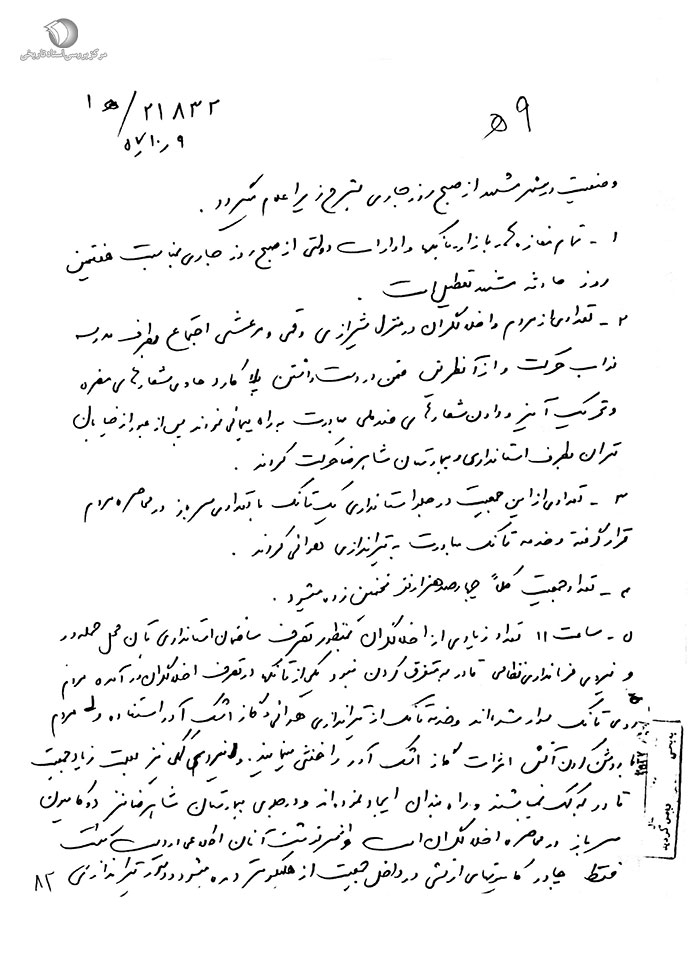 مرکز بررسی اسناد تاریخی
۲۱۸۳۲/ ه ۱
۹ ه
۹ر۱۰ر۵۷
وضعیت در شهر مشهد از صبح روز جاری بشرح زیر اعلام میگردد .
۱ - تمام مغازه ها و بازار و بانکها و ادارات دولتی از صبح روز جاری بمناسبت هفتمین
روز حادثه مشهد تعطیل است .
۲ - تعدادی از مردم و اخلالگران در منزل شیرازی و قمی و مرعشی اجتماع بطرف مدرسه
نواب حرکت و از آنطرف ضمن در دست داشتن پلاکارد حاوی شعارهای مضره
و تحریک آمیز و دادن شعارهای ضد ملی مبادرت به راه پیمائی نمودند پس از عبور از خیابان
تهران بطرف استانداری و بیمارستان شاهرضا حرکت کردند .
۳ - تعدادی از این جمعیت در جلو استانداری یک تانک با تعدادی سرباز در محاصره مردم
قرار گرفته و خدمه تانک مبادرت به تیراندازی هوائی کردند .
۴ - تعداد جمعیت کلاً چهارصد هزار نفر تخمین زده میشود .
۵ - ساعت ۱۱ تعداد زیادی از اخلالگران بمنظور تصرف ساختمان استانداری بآن محل حمله‌ور
و نیروی فرمانداری نظامی قادر به متفرق کردن نبود یکی از تانکها در تصرف اخلالگران در آمده مردم
روی تانک سوار شده‌اند و خدمه تانک از تیراندازی هوائی و گاز اشک آور استفاده ولی مردم
با روشن کردن آتش اثرات گاز اشک آور را خنثی مینمایند . و نیروی کمکی نیز بعلت زیاد جمعیت
قادر به کمک نمیباشند و راه بندان ایجاد نموده‌اند و در جلوی بیمارستان شاهرضا نیز دو کامیون
سرباز در محاصره اخلالگران است و از سرنوشت آنان اطلاعی در دست نیست
فقط چادر کامیونهای ارتش در داخل جمعیت از هلیکوپتر دیده میشود و دستور تیراندازی
۸۲